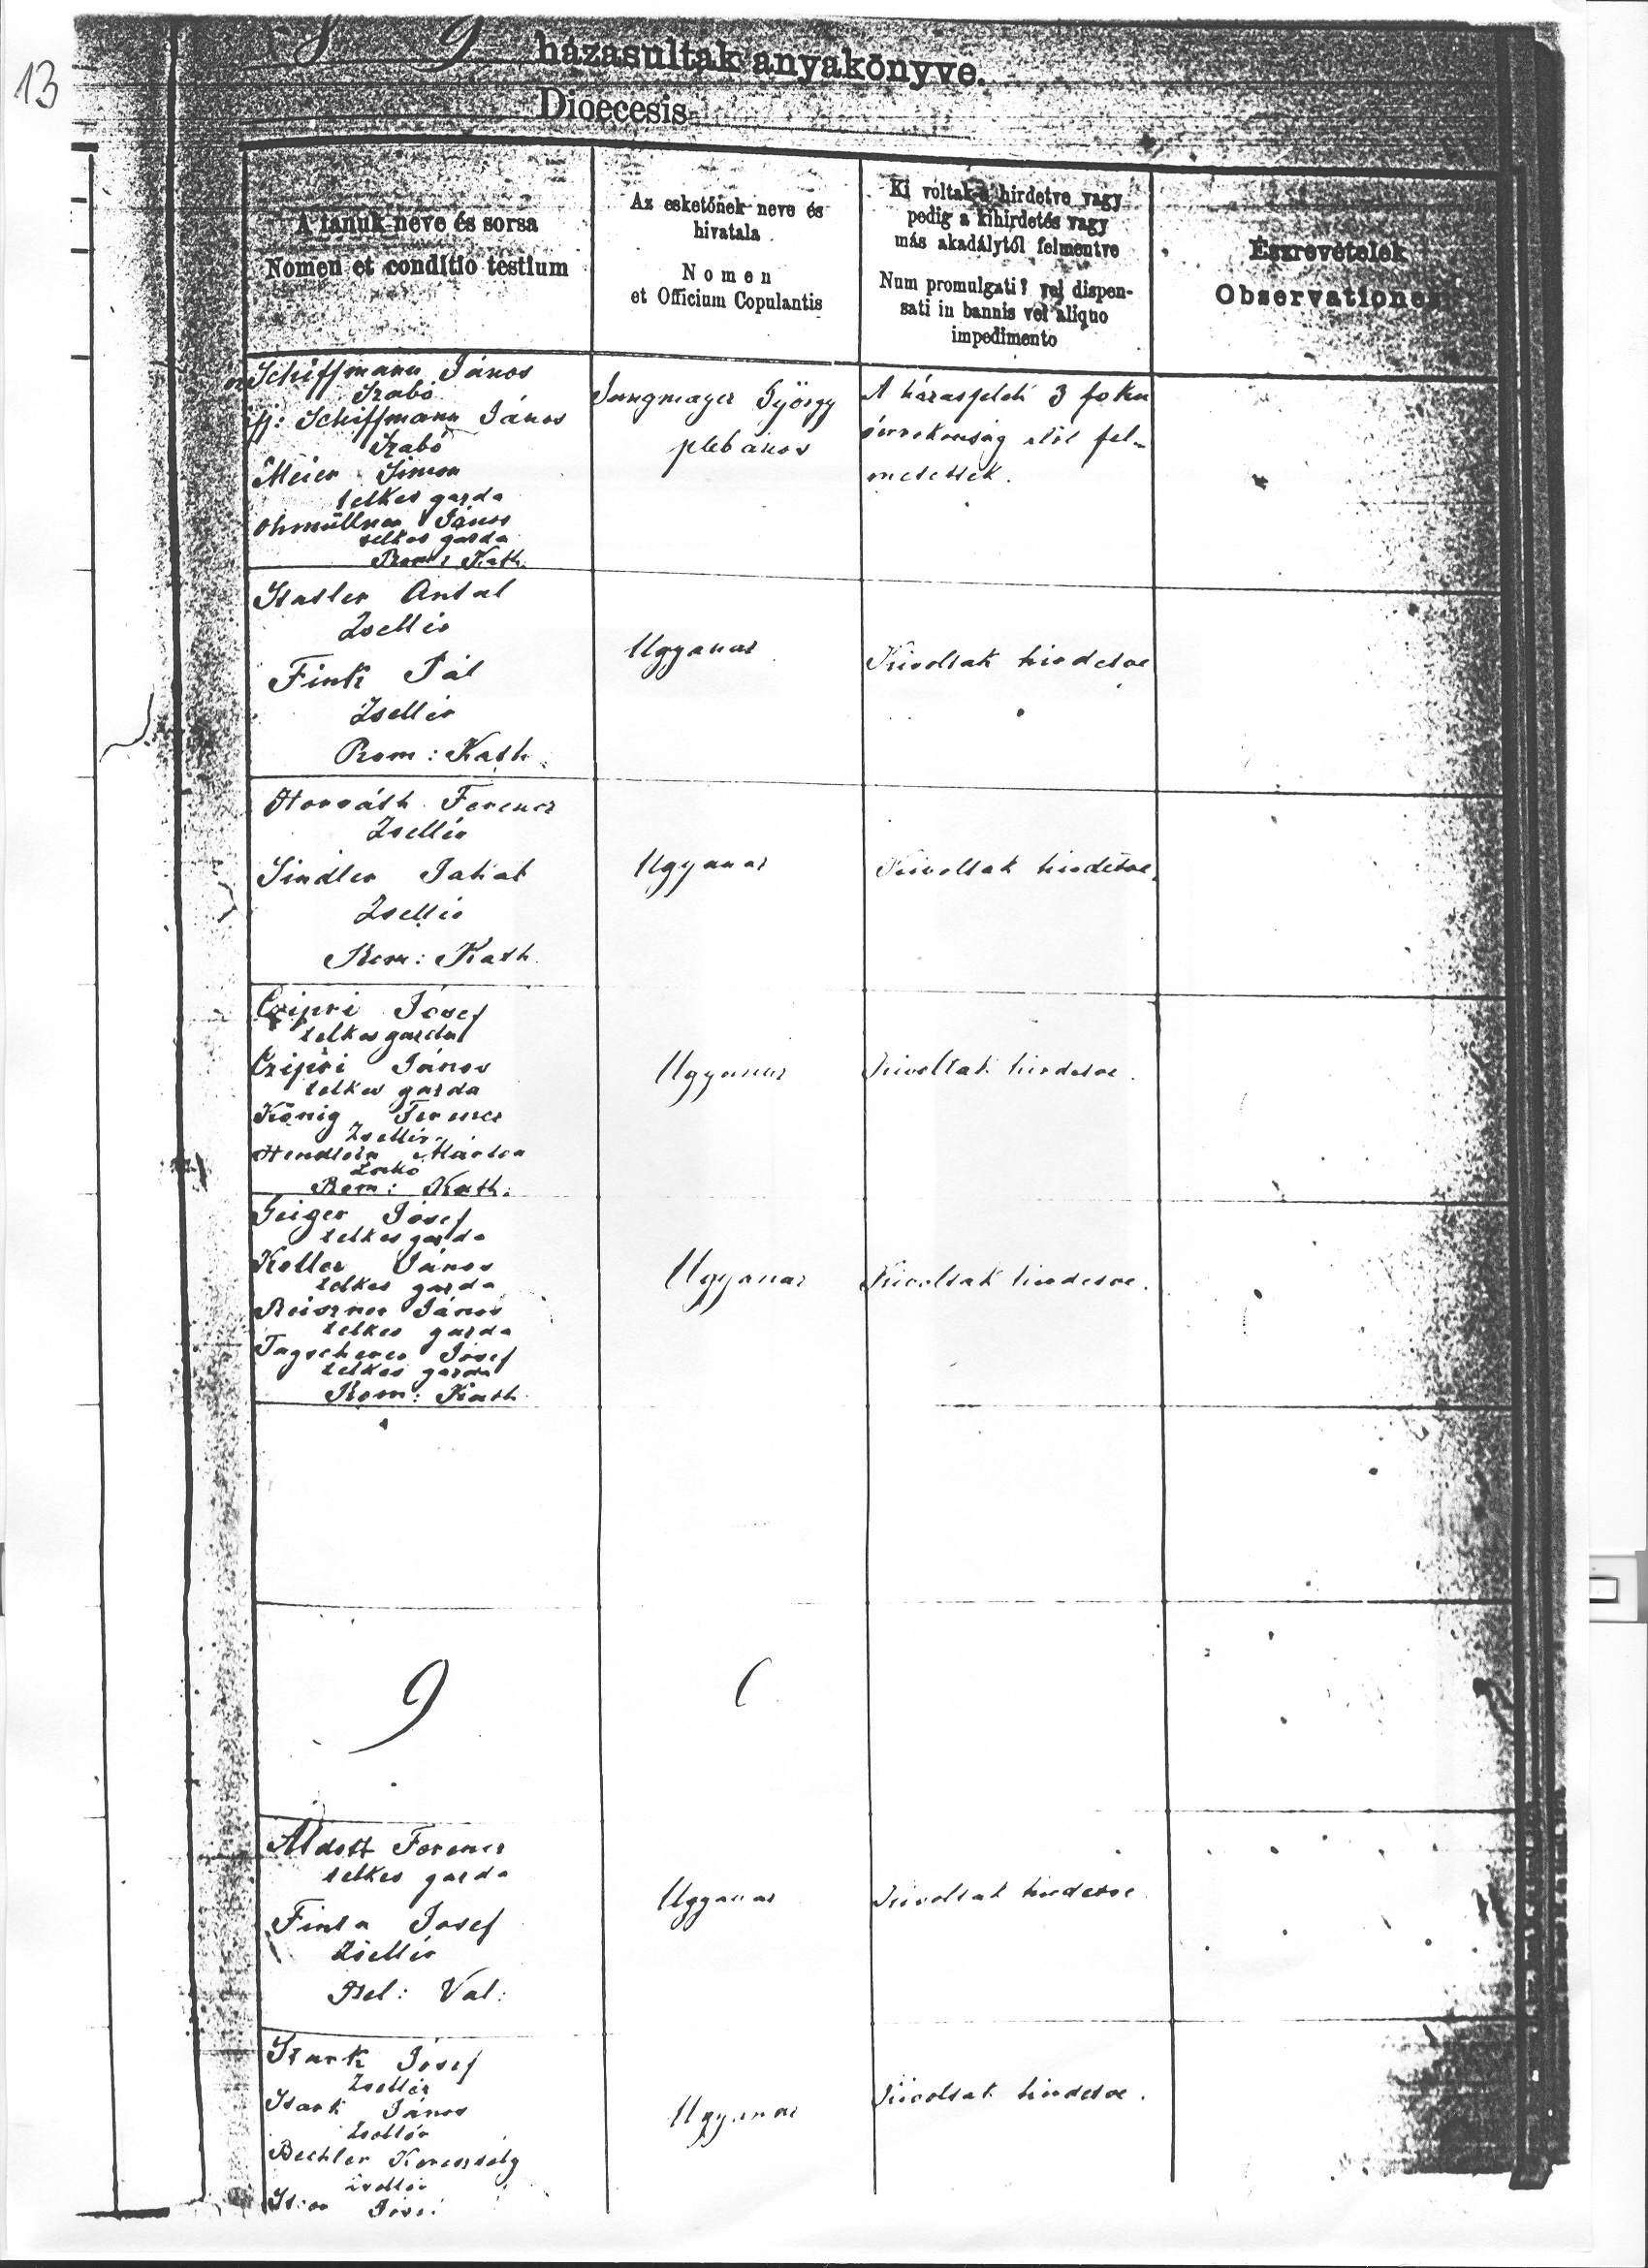 13
8 9 házasultak anyakönyve.
Dioecesis
A tanuk neve és sorsa
Nomen et conditio testium
Az esketőnek neve és
hivatala
Nomen
et Officium Copulantis
Ki voltak-é hirdetve vagy
pedig a kihirdetés vagy
más akadálytól felmentve
Num promulgati? vel dispen-
sati in bannis vel aliquo
impedimento
Észrevételek
Observationes
Schiffmann János
Szabó
ifj: Schiffmann János
Szabó
Meier Simon
telkes gazda
Ohmüllner János
telkes gazda
Rom: Kath.
Jungmayer György
plebános
A házasfelek 3 foku
rokonság alól fel-
mentettek.
Stadler Antal
Zsellér
Fink Pál
Zsellér
Rom: Kath.
Ugyanaz
Kivoltak hirdetve
Horváth Ferencz
Zsellér
Sindler Jakab
Zsellér
Rom: Kath.
Ugyanaz
Kivoltak hirdetve.
Czipri Jósef
telkes gazda
Czipri János
telkes gazda
König Ferencz
Zsellér
Márton
Rom: Kath.
Ugyanaz
Kivoltak hirdetve.
Geiger Jósef
telkes gazda
Koller János
telkes gazda
Reiszner János
telkes gazda
Tagscherer Jósef
telkes gazda
Rom: Kath.
Ugyanaz
Kivoltak hirdetve.
9
Aldott Ferencz
telkes gazda
Finta Josef
Zsellér
Hel: Val:
Ugyanaz
Kivoltak hirdetve
Stark Jósef
Zsellér
Stark János
Zsellér
Bechler Keresztély
Zsellér
Ugyanaz
Kivoltak hirdetve.